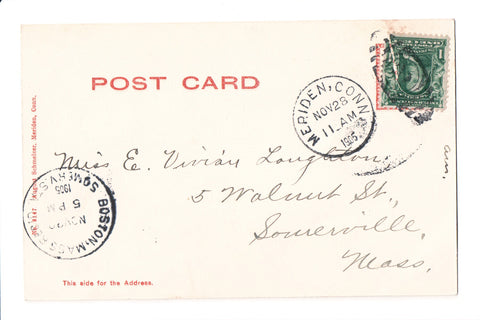 POST CARD
MERIDEN, CONN.
NOV 28
11 AM
1905
Miss E. Vivian Loughton,
5 Walnut St.,
Somerville,
Mass.
BOSTON, MASS.
5 PM
1905
This side for the Address.
Schmelzer, Meriden, Conn.